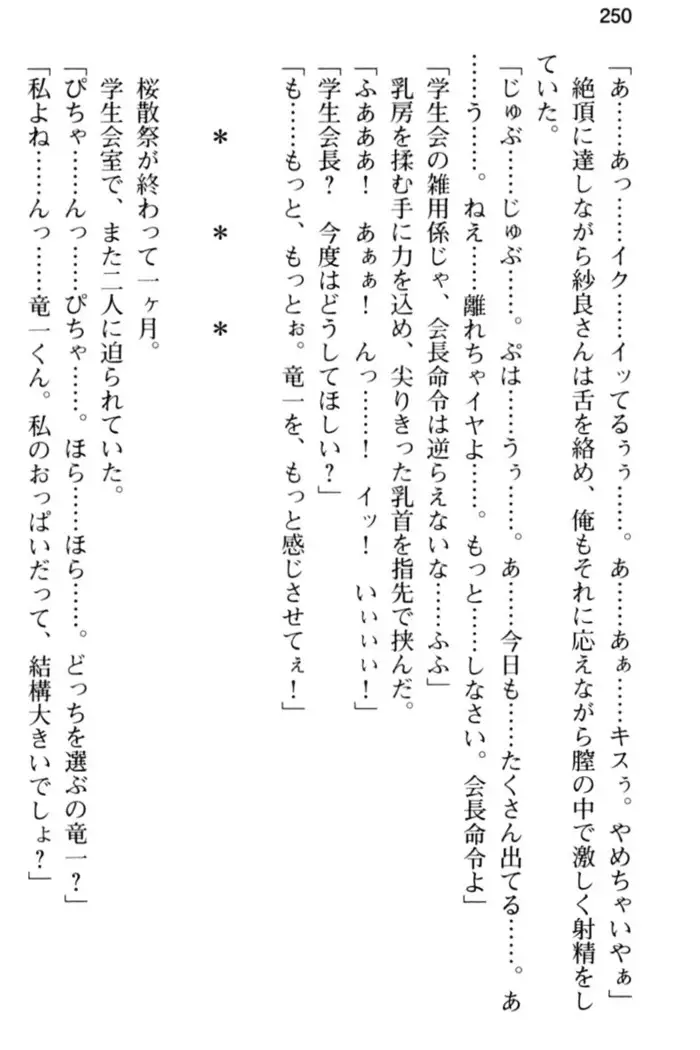 250
「あ……あっ……イク……イッてるぅぅ……。あ……あぁ……キスぅ。やめちゃいやぁ」
絶頂に達しながら紗良さんは舌を絡め、俺もそれに応えながら膣の中で激しく射精をし
ていた。
「じゅぶ……じゅぶ……。ぷは……うぅ……。あ……今日も……たくさん出てる……。あ
……う……。ねえ……離れちゃイヤよ……。もっと……しなさい。会長命令よ」
「学生会の雑用係じゃ、会長命令は逆らえないな……ふふ」
乳房を揉む手に力を込め、尖りきった乳首を指先で挟んだ。
「ふあああ！　あぁぁ！　んっ……！　イッ！　いぃぃぃ！」
「学生会長？　今度はどうしてほしい？」
「も……もっと、もっとぉ。竜一を、もっと感じさせてぇ！」
＊　＊　＊
桜散祭が終わって一ヶ月。
学生会室で、また二人に迫られていた。
「ぴちゃ……んっ……ぴちゃ……。ほら……ほら……。どっちを選ぶの竜一？」
「私よね……んっ……竜一くん。私のおっぱいだって、結構大きいでしょ？」